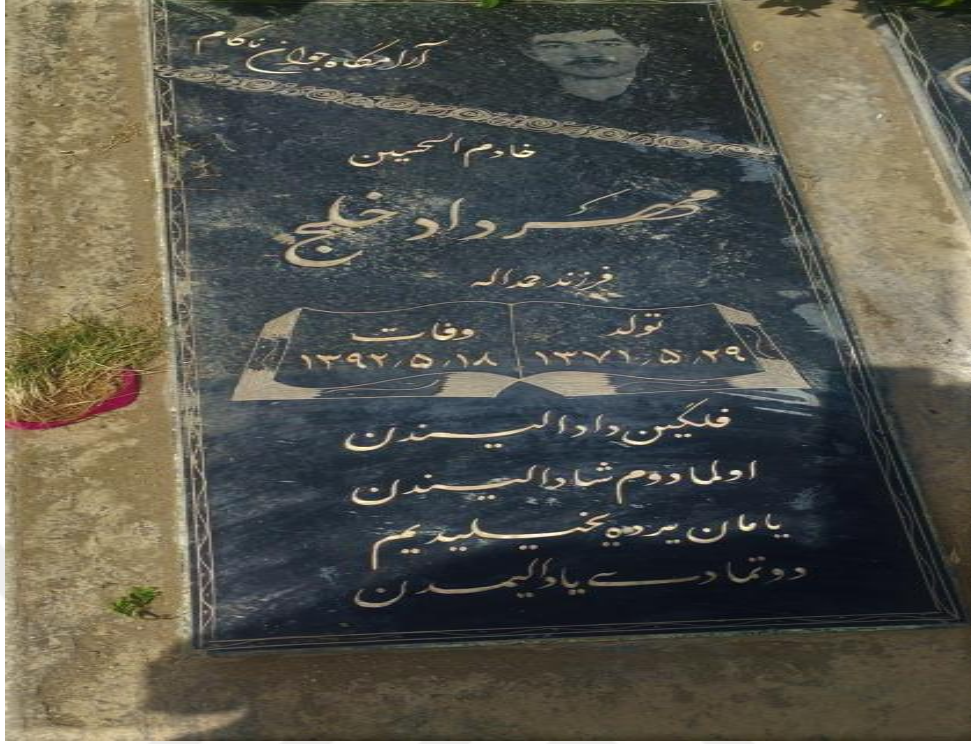 آرامگاه جوان ناکام
خادم الحسین
مهرداد خلج
فرزند حمداله
تولد
۱۳۷۱/۵/۲۹
وفات
۱۳۹۲/۵/۱۸
فلگین داد الیندن
اولمادوم شاد الیندن
یامان یرده یخیلیدیم
دوتمادی یاد الیمدن